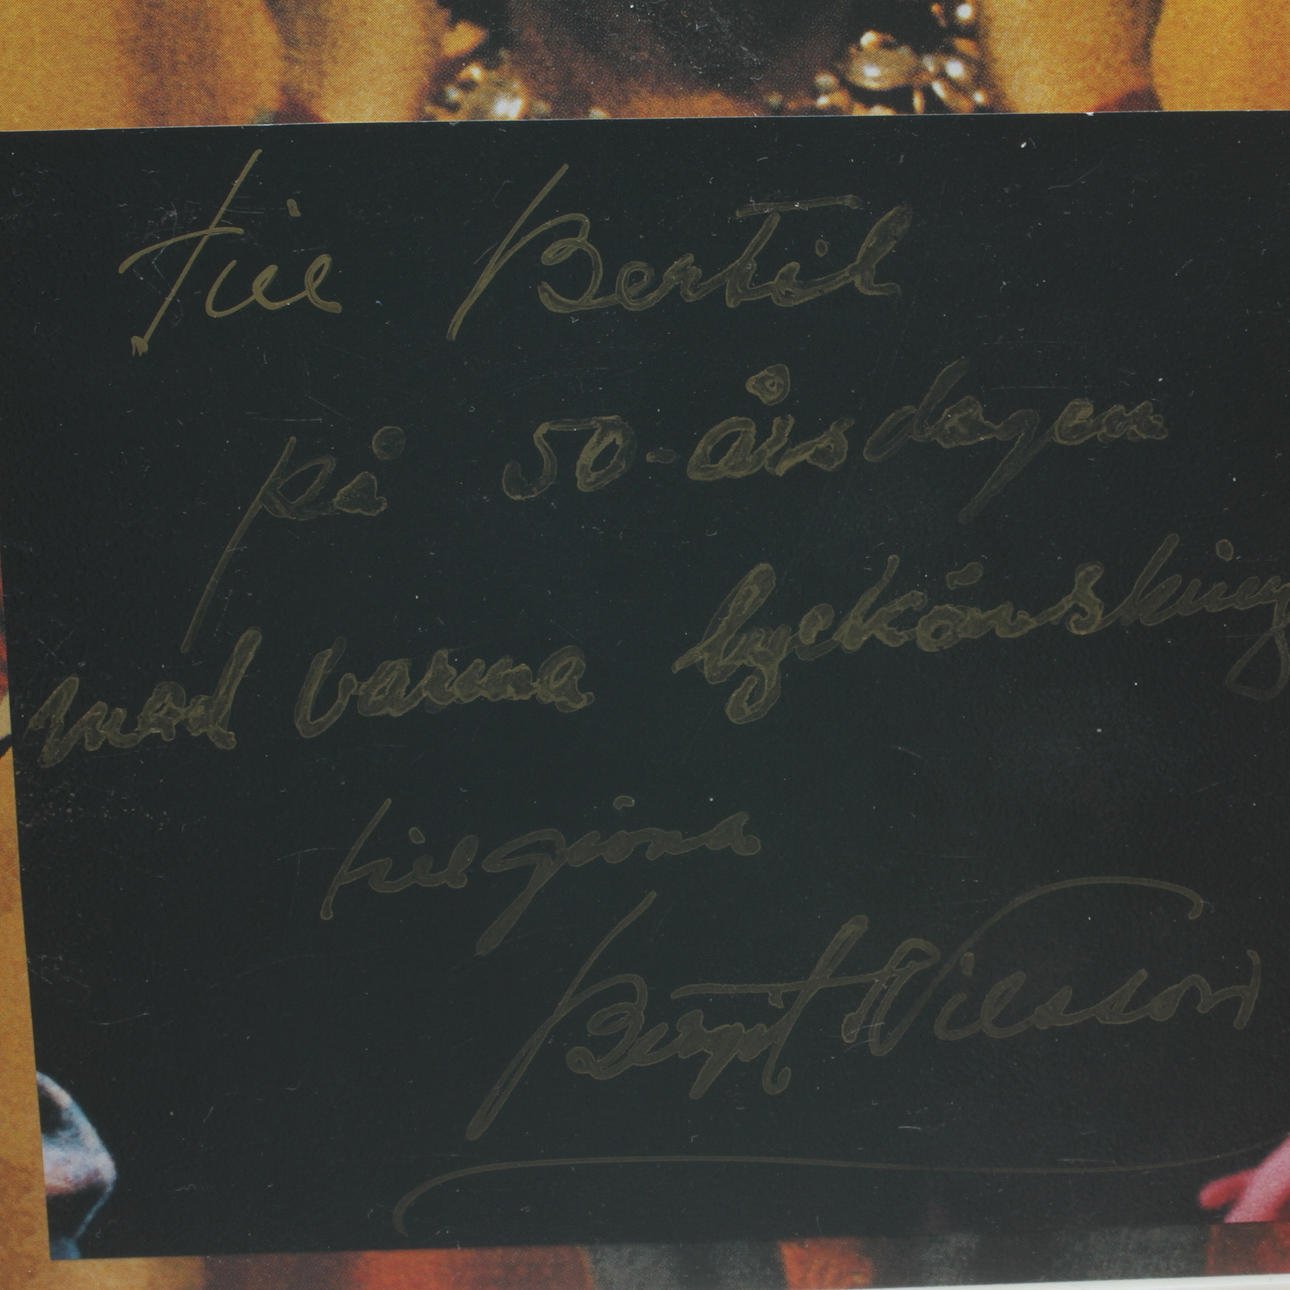 till Bertil
på 50-årsdagen
med varma lyckönskning
tillegiona
Bengt Nilsson